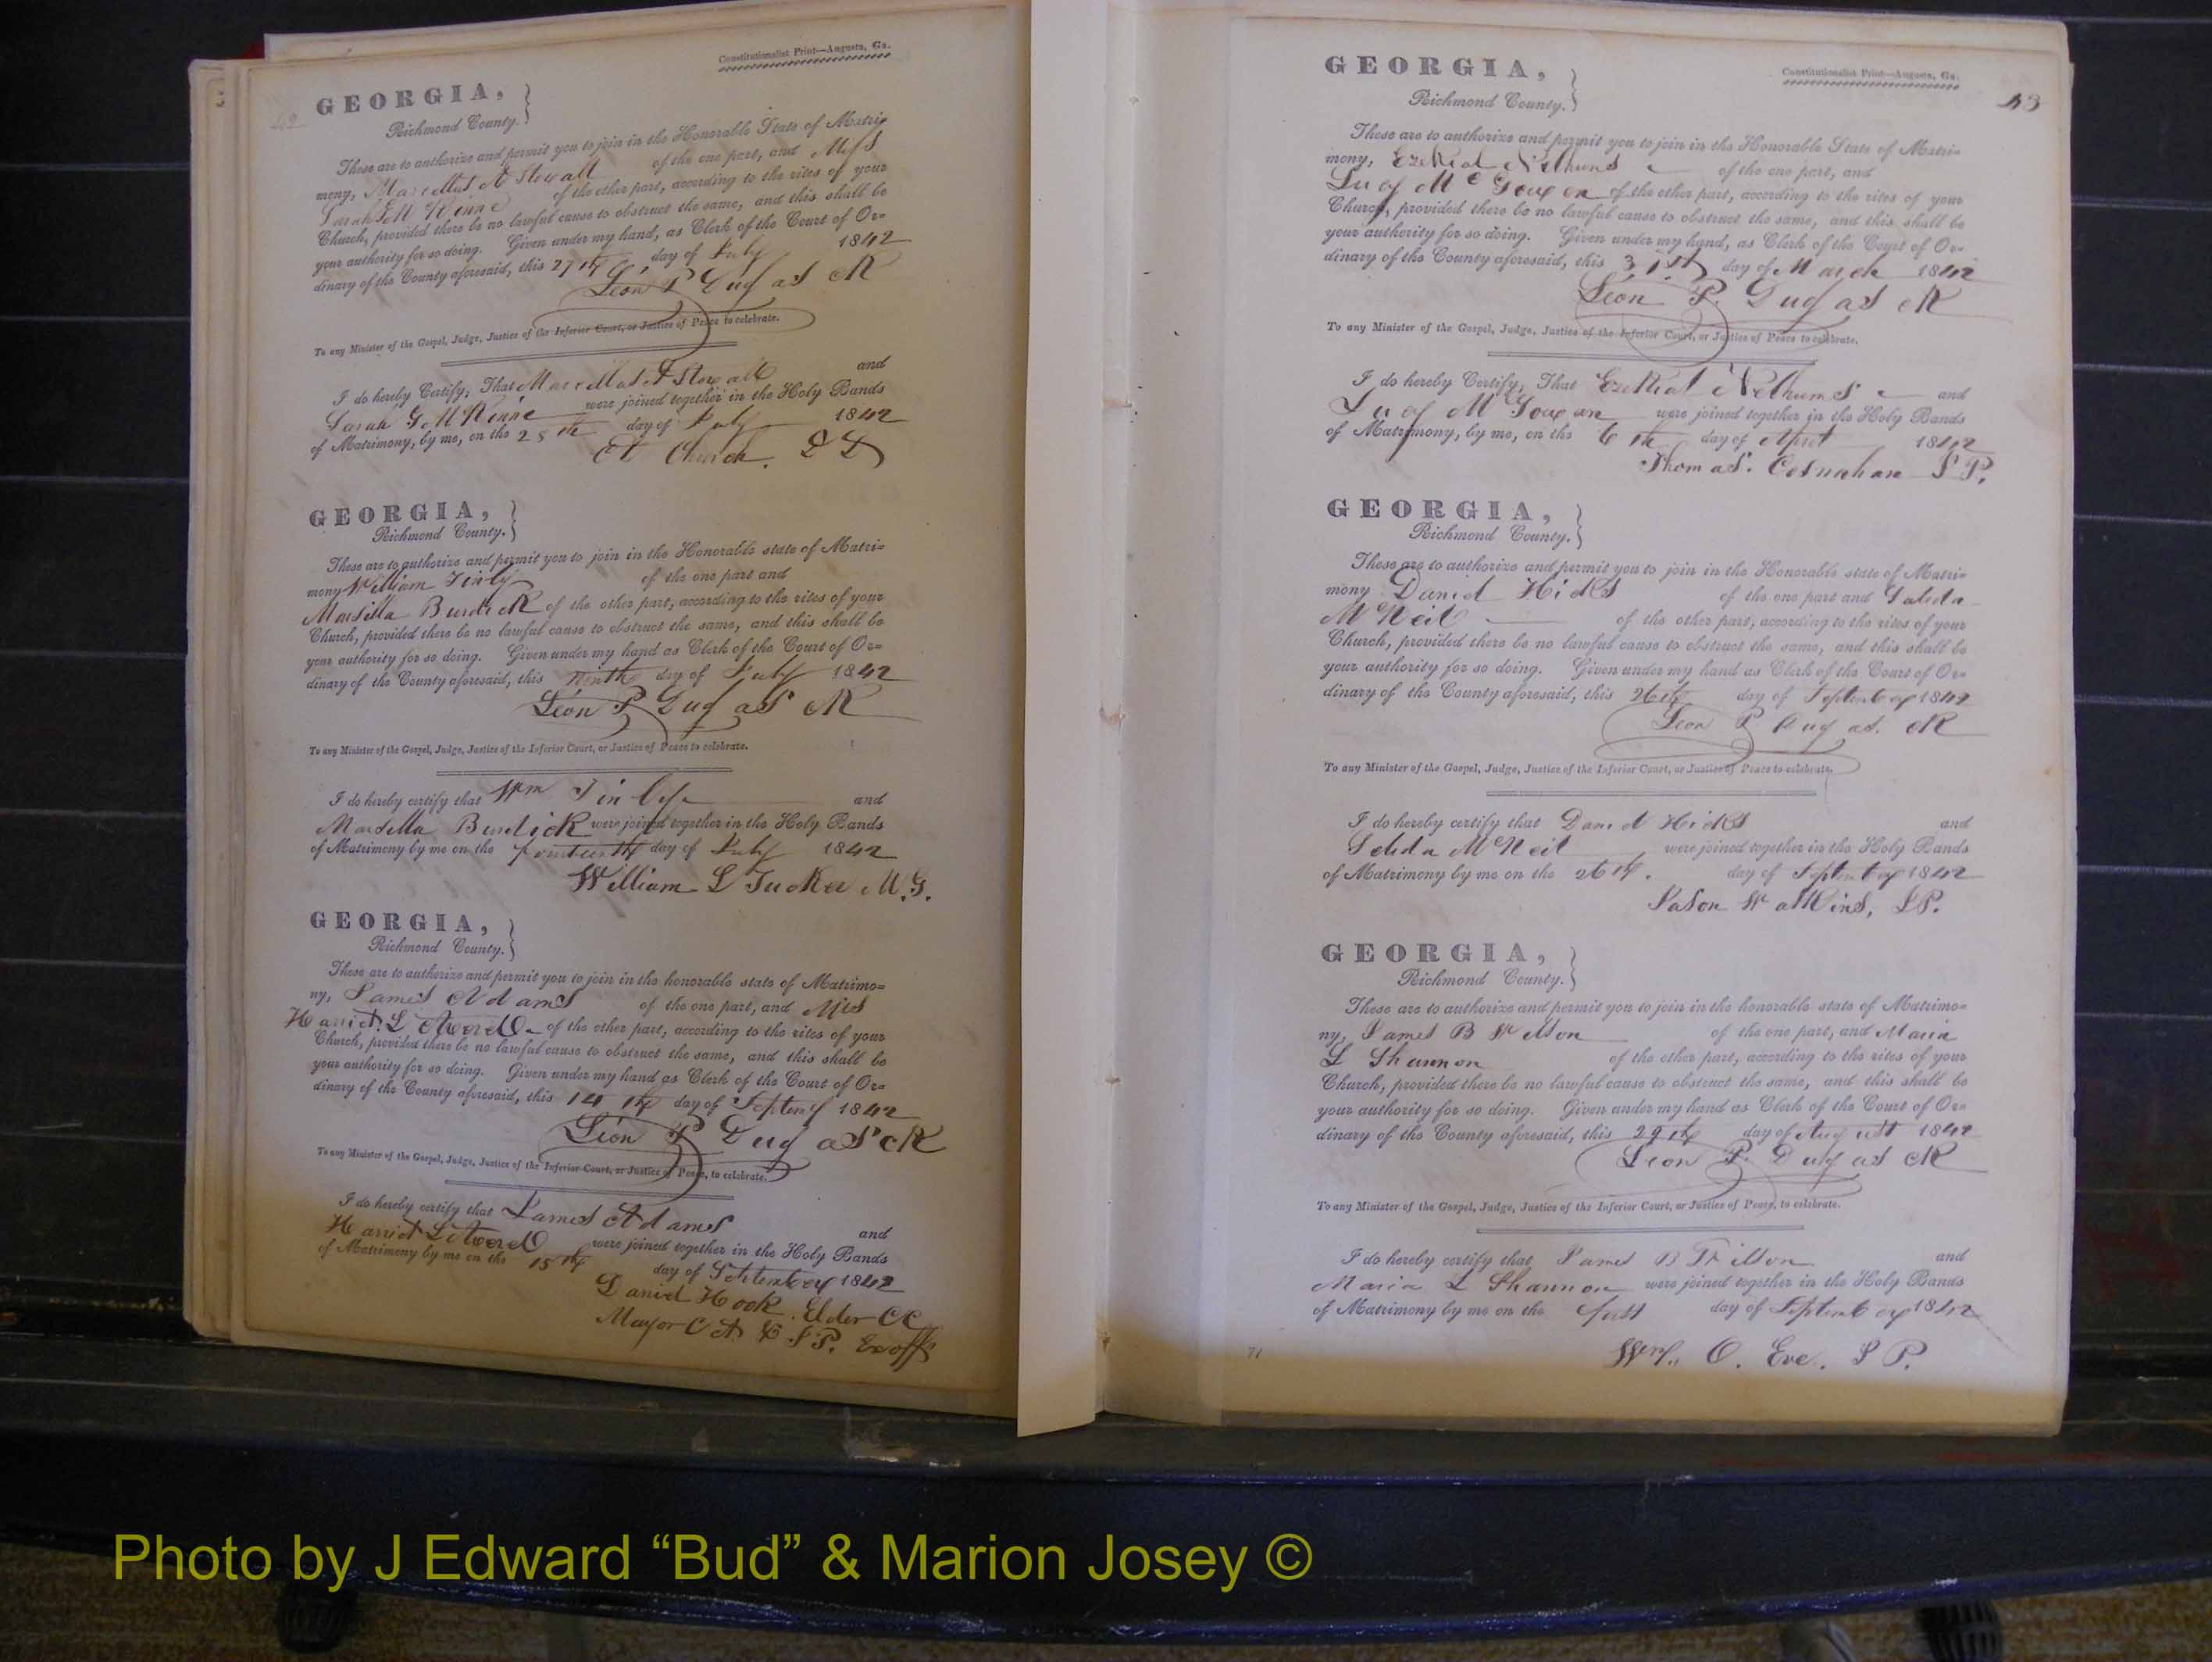 Constitutionalist Print—Augusta, Ga.
42
GEORGIA,
Richmond County.
These are to authorize and permit you to join in the Honorable State of Matri-
mony, Marcellus A Stovall of the one part, and Miss
Sarah G McKinne of the other part, according to the rites of your
Church, provided there be no lawful cause to obstruct the same, and this shall be
your authority for so doing. Given under my hand, as Clerk of the Court of Or-
dinary of the County aforesaid, this 27th day of July 1842
Leon P Dugas Clk
To any Minister of the Gospel, Judge, Justice of the Inferior Court, or Justice of Peace to celebrate.
I do hereby Certify, That Marcellus A Stovall and
Sarah G McKinne were joined together in the Holy Bands
of Matrimony, by me, on the 28th day of July 1842
Church. DD
GEORGIA,
Richmond County.
These are to authorize and permit you to join in the Honorable state of Matri-
mony William Tinly of the one part and
Marsilla Burdick of the other part, according to the rites of your
Church, provided there be no lawful cause to obstruct the same, and this shall be
your authority for so doing. Given under my hand as Clerk of the Court of Or-
dinary of the County aforesaid, this ninth day of July 1842
Leon P Dugas Clk
To any Minister of the Gospel, Judge, Justice of the Inferior Court, or Justice of Peace to celebrate.
I do hereby certify that Wm Tinly and
Marsella Burdick were joined together in the Holy Bands
of Matrimony by me on the fourteenth day of July 1842
William L Tucker M.G.
GEORGIA,
Richmond County.
These are to authorize and permit you to join in the honorable state of Matrimo-
ny, James Adams of the one part, and Miss
Harriet L of the other part, according to the rites of your
Church, provided there be no lawful cause to obstruct the same, and this shall be
your authority for so doing. Given under my hand as Clerk of the Court of Or-
dinary of the County aforesaid, this 14th day of Septemy 1842
Leon P Dugas Clk
To any Minister of the Gospel, Judge, Justice of the Inferior Court, or Justice of Peace, to celebrate.
I do hereby certify that James Adams and
Harriet L were joined together in the Holy Bands
of Matrimony by me on the 15th day of September 1842
Daniel Hook. Elder CC
Mayor C A & JP. Exoff
Constitutionalist Print—Augusta, Ga.
43
GEORGIA,
Richmond County.
These are to authorize and permit you to join in the Honorable State of Matri-
mony, Ezekial Nethums of the one part, and
Lucy McGowen of the other part, according to the rites of your
Church, provided there be no lawful cause to obstruct the same, and this shall be
your authority for so doing. Given under my hand, as Clerk of the Court of Or-
dinary of the County aforesaid, this 31st day of March 1842
Leon P. Dugas Clk
To any Minister of the Gospel, Judge, Justice of the Inferior Court, or Justice of Peace to celebrate.
I do hereby Certify, That Ezekial Nethums and
Lucy McGowen were joined together in the Holy Bands
of Matrimony, by me, on the 6th day of April 1842
Thomas. Cosnahan JP.
GEORGIA,
Richmond County.
These are to authorize and permit you to join in the Honorable state of Matri-
mony Daniel Hicks of the one part and Salida
McNeil of the other part, according to the rites of your
Church, provided there be no lawful cause to obstruct the same, and this shall be
your authority for so doing. Given under my hand as Clerk of the Court of Or-
dinary of the County aforesaid, this 26th day of September 1842
Leon P Dugas. Clk
To any Minister of the Gospel, Judge, Justice of the Inferior Court, or Justice of Peace to celebrate.
I do hereby certify that Daniel Hicks and
Selida McNeil were joined together in the Holy Bands
of Matrimony by me on the 26th. day of September 1842
Jason Watkins, JP.
GEORGIA,
Richmond County.
These are to authorize and permit you to join in the honorable state of Matrimo-
ny, James B Wilson of the one part, and Maria
L Shannon of the other part, according to the rites of your
Church, provided there be no lawful cause to obstruct the same, and this shall be
your authority for so doing. Given under my hand as Clerk of the Court of Or-
dinary of the County aforesaid, this 29th day of August 1842
Leon P. Dugas Clk
To any Minister of the Gospel, Judge, Justice of the Inferior Court, or Justice of Peace, to celebrate.
I do hereby certify that James B Wilson and
Maria L Shannon were joined together in the Holy Bands
of Matrimony by me on the first day of September 1842
Wm. O. Eve. JP.
71
Photo by J Edward “Bud” & Marion Josey ©